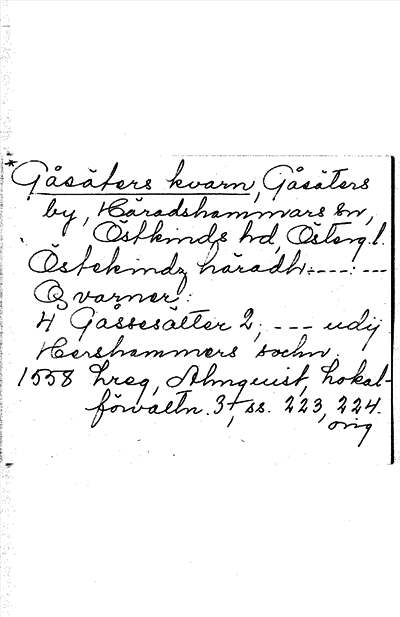 * Gåsäters kvarn, Gåsäters
by, Häradshammars sn,
Östkinds hd, Österg. l.
Östekindz häradh: ---: ---
Qvarner:
4 Gåssesätter 2; --- udij
Hershammers sochn.
1558 hreg, Almquist, Lokal-
förvaltn. 3, ss. 223, 224.
orig